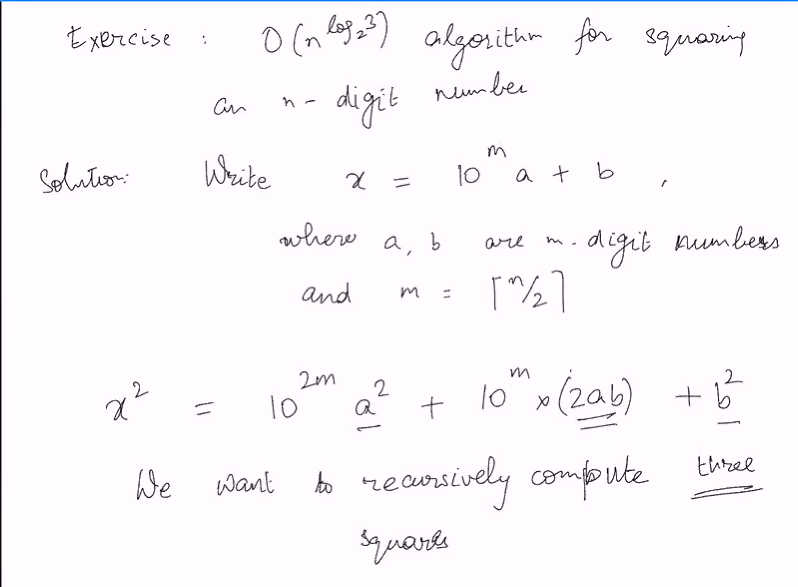 Exercise : O(n^{log_2 3}) algorithm for squaring
an n-digit number
Solution: Write x = 10^m a + b ,
where a, b are m-digit numbers
and m = ⌈n/2⌉
x^2 = 10^{2m} a^2 + 10^m × (2ab) + b^2
We want to recursively compute three
squares